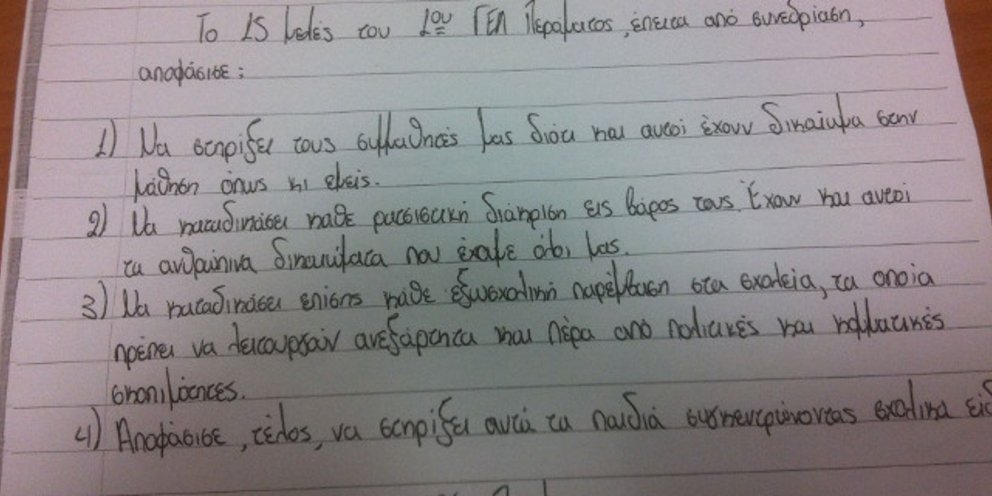 Το 15 μελές του 1ου ΓΕΛ Περάματος, έπειτα από συνεδρίαση,
αποφάσισε:
1) Να στηρίξει τους συμμαθητές μας διότι και αυτοί έχουν δικαίωμα στην
μάθηση όπως κι εμείς.
2) Να καταδικάσει κάθε ρατσιστική διάκριση εις βάρος τους. Έχουν και αυτοί
τα ανθρώπινα δικαιώματα που έχουμε όλοι μας.
3) Να καταδικάσει επίσης κάθε εξωσχολική παρέμβαση στα σχολεία, τα οποία
πρέπει να λειτουργούν ανεξάρτητα και πέρα από πολιτικές και κομματικές
σκοπιμότητες.
4) Αποφάσισε, τέλος, να στηρίξει αυτά τα παιδιά συγκεντρώνοντας σχολικά είδ